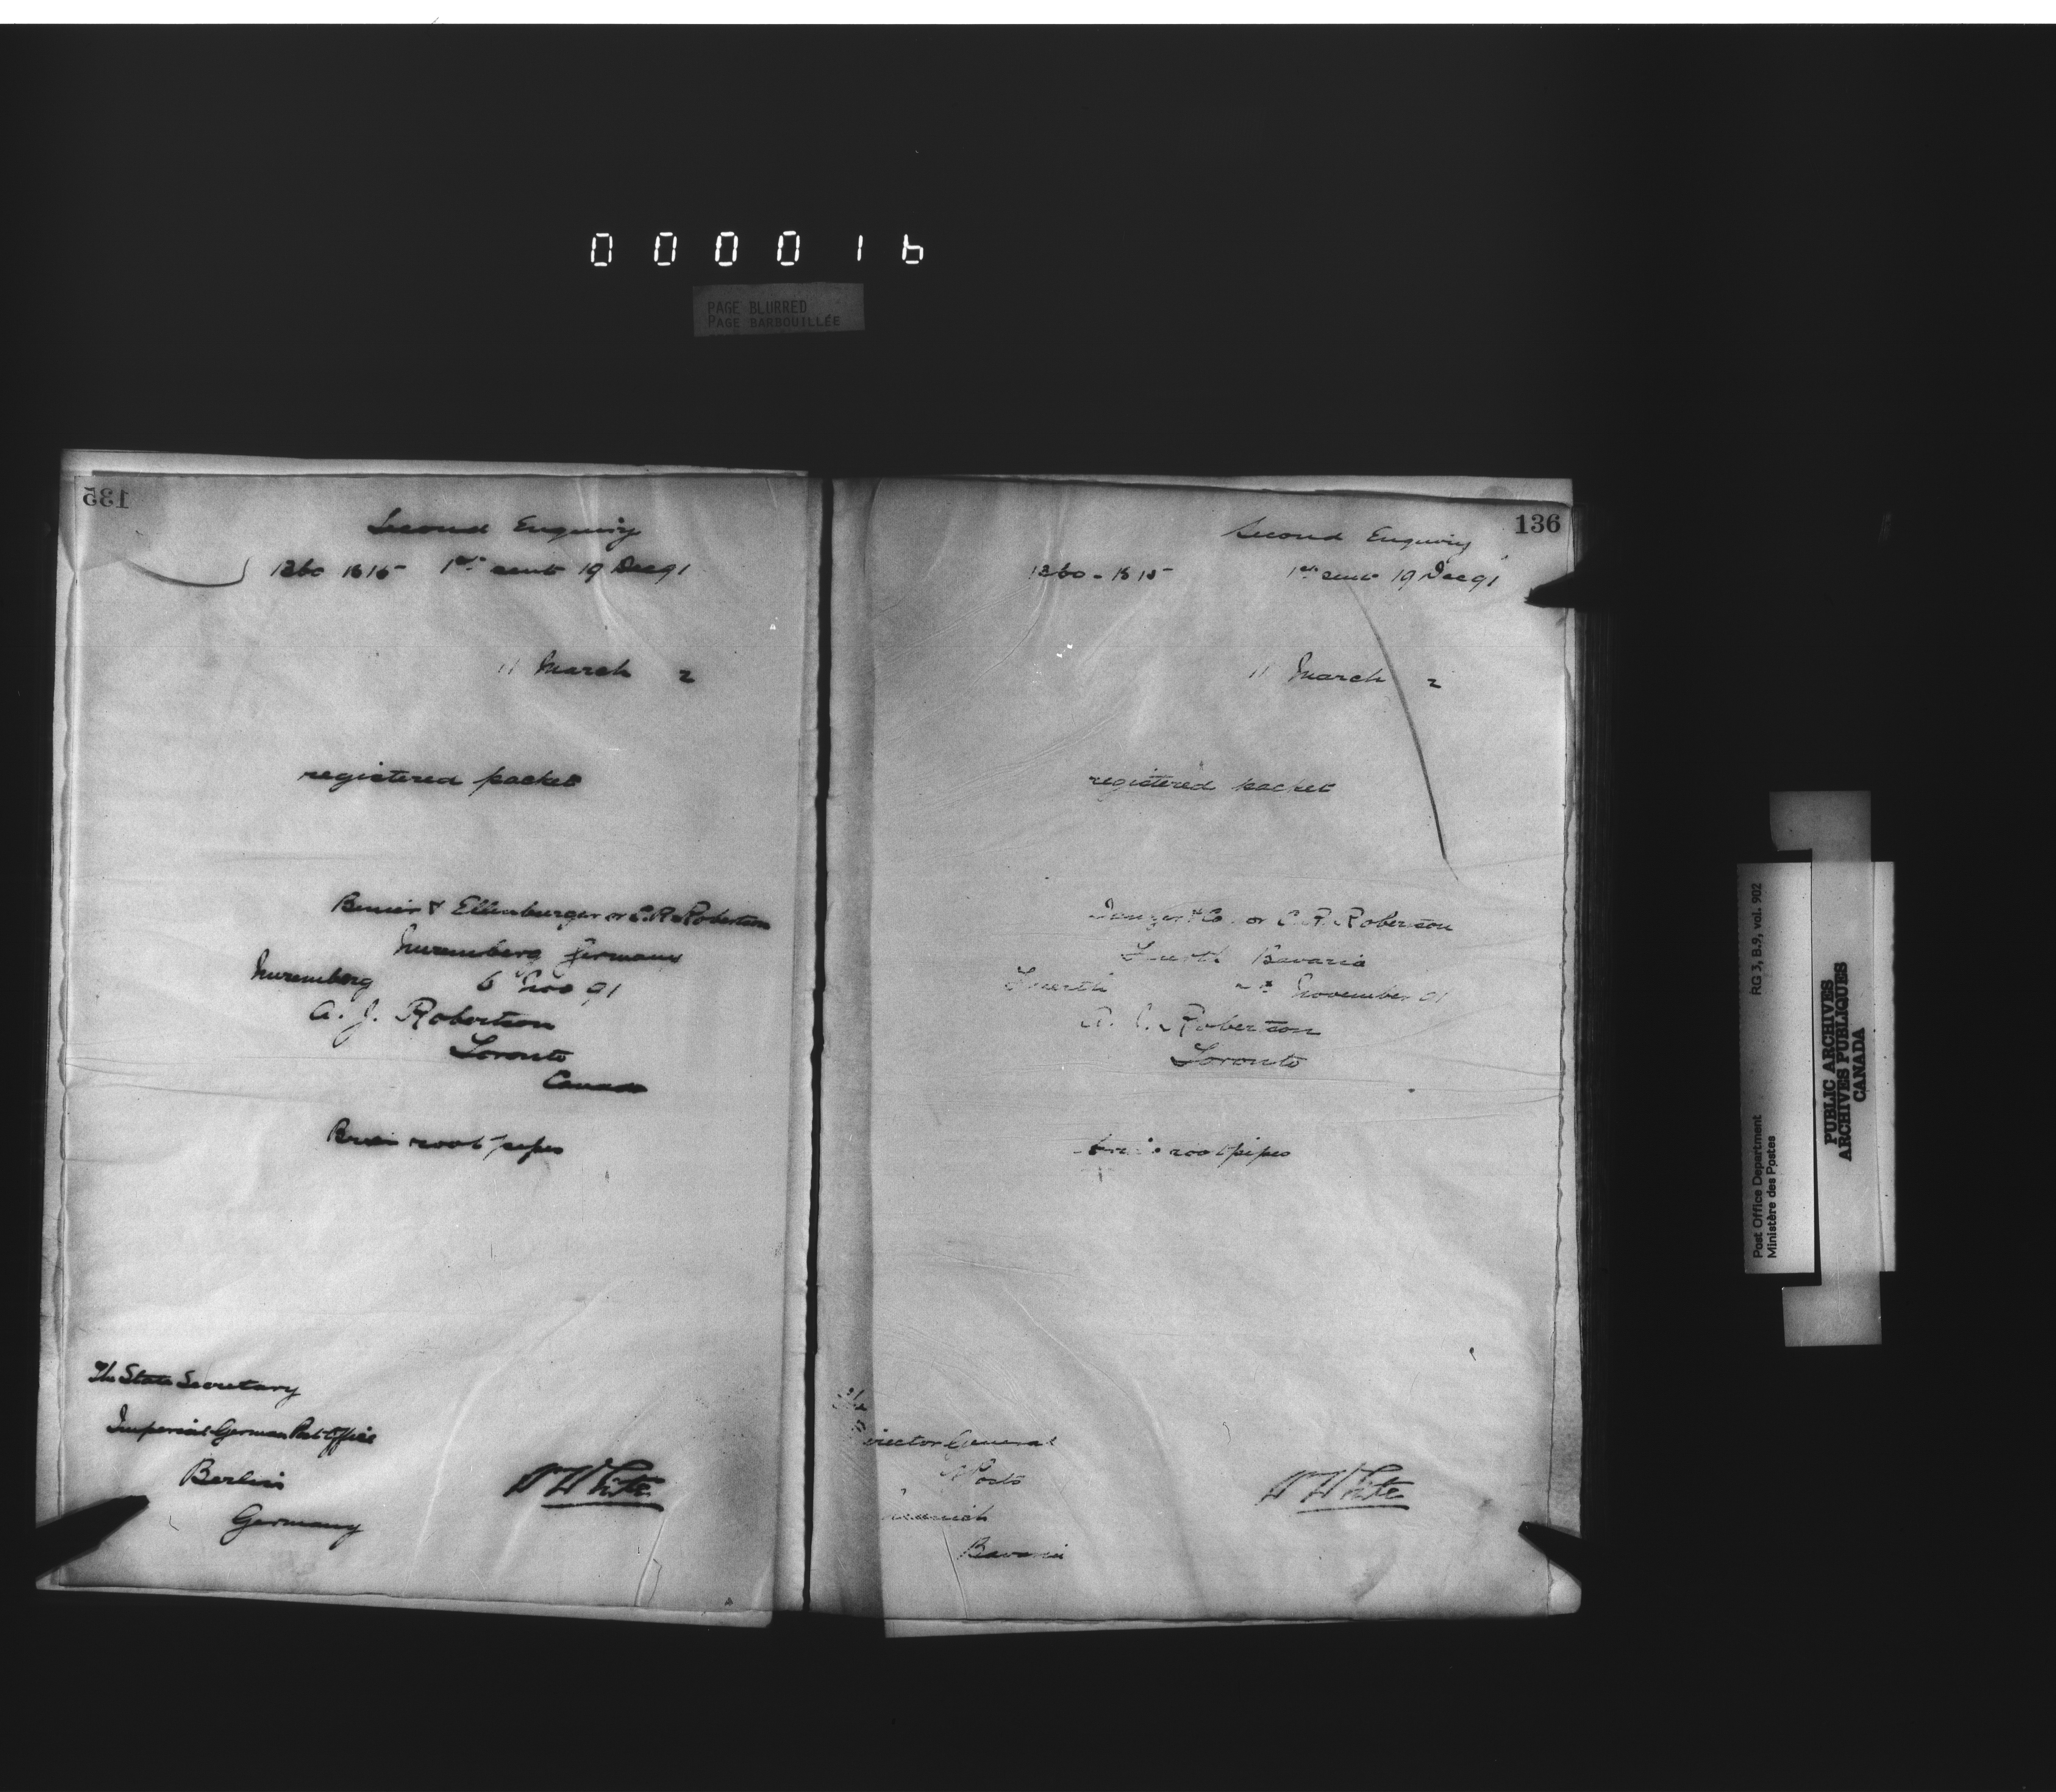 000016
PAGE BLURRED
PAGE BARBOUILLÉE
135
Second Enquiry
1260 B 15 1st sent 19 Dec 91
11 March 2
registered packet
& Ellenburger or C. R. Robertson
Nuremberg Germany
Nuremberg 6 Nov 91
A. J. Robertson
Toronto
Canada
Brier root pipes
The State Secretary
Imperial German Post Office
Berlin
Germany
W White
136
Second Enquiry
1260 - B 15 1st sent 19 Dec 91
11 March 2
registered packet
& Co. or C. R. Robertson
Fuerth Bavaria
Fuerth November 91
A. J. Robertson
Toronto
root pipes
Director General
of Posts
Munich
Bavaria
W White
Post Office Department RG 3, B.9, vol. 902
Ministère des Postes
PUBLIC ARCHIVES
ARCHIVES PUBLIQUES
CANADA